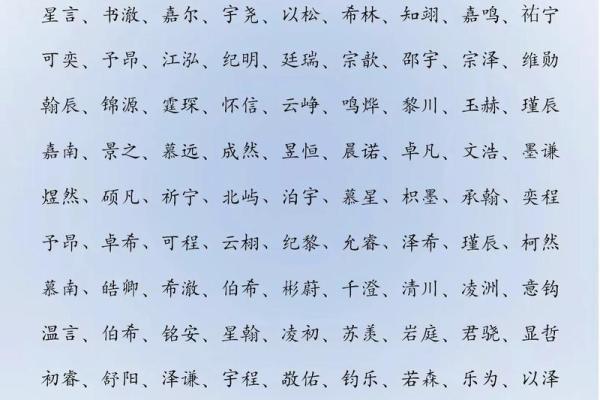 星言、书澈、嘉尔、宇尧、以松、希林、知翊、嘉鸣、祐宁
可奕、予昂、江泓、纪明、廷瑞、宗歆、邵宇、宗泽、维勋
翰辰、锦源、霆琛、怀信、云峥、鸣烨、黎川、玉赫、瑾辰
嘉南、景之、慕远、成然、昱恒、晨诺、卓凡、文浩、墨谦
煜然、硕凡、祈宁、北屿、泊宇、慕星、枳墨、承翰、奕程
予昂、卓希、可程、云栩、纪黎、允睿、泽希、瑾辰、柯然
慕南、皓卿、希澈、伯希、彬蔚、千澄、清川、凌洲、意钧
温言、伯希、铭安、星翰、凌初、苏羡、岩庭、君骁、显哲
初睿、舒阳、泽谦、宇程、敬佑、钧乐、若森、乐为、以泽